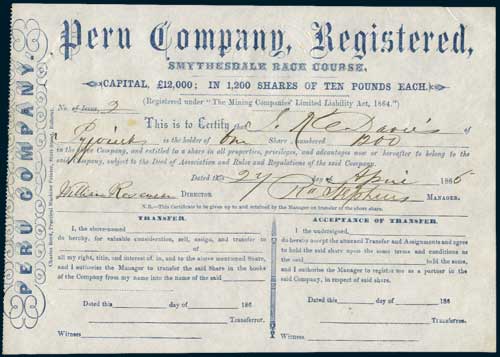 Peru Company, Registered,
SMYTHESDALE RACE COURSE,
CAPITAL, £12,000; IN 1,200 SHARES OF TEN POUNDS EACH.
(Registered under "The Mining Companies' Limited Liability Act, 1864.")
No. of Issue, 2
This is to Certify that
of
is the holder of One Share, numbered 1200
in the above Company, and entitled to a share in all properties, privileges, and advantages now or hereafter to belong to the
said Company, subject to the Deed of Association and Rules and Regulations of the said Company.
Dated this 24 day of April 186
William DIRECTOR. Stephens MANAGER.
N.B.—This certificate to be given up to and retained by the Manager on transfer of the above share.
TRANSFER.
I, the above-named
do hereby, for valuable consideration, sell, assign, and transfer to
of
all my right, title, and interest of, in, and to the above mentioned Share,
and I authorise the Manager to transfer the said Share in the books
of the Company from my name into the name of the said
Dated this day of 186
Transferror.
Witness
ACCEPTANCE OF TRANSFER.
I the undersigned,
do hereby accept the annexed Transfer and Assignments and agree
to hold the said share upon the same terms and conditions as
the said held the same,
and I authorise the Manager to register me as a partner in the
said Company, in respect of said share.
Dated this day of 186
Transferree.
Witness
PERU COMPANY.
Charles Boyd, Practical Machine Printer, Sturt-street, Ballarat.